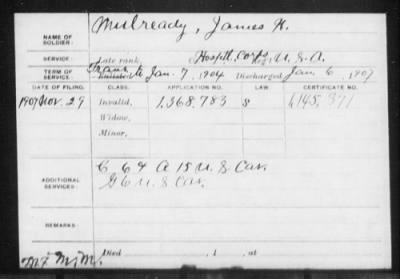 Mulready, James H.
NAME OF SOLDIER:
SERVICE: Late rank, Hospltl. Corps U. S. A.
TERM OF SERVICE: Jan. 7, 1904 Discharged Jan. 6, 1907
DATE OF FILING. CLASS. APPLICATION NO. LAW CERTIFICATE NO.
1907 Nov. 29 Invalid, 1,368,783 1,145,371
Widow,
Minor,
C 6 & A 15 U. S. Cav.
ADDITIONAL SERVICES: G 6 U. S. Cav.
REMARKS:
Died , 1 , at